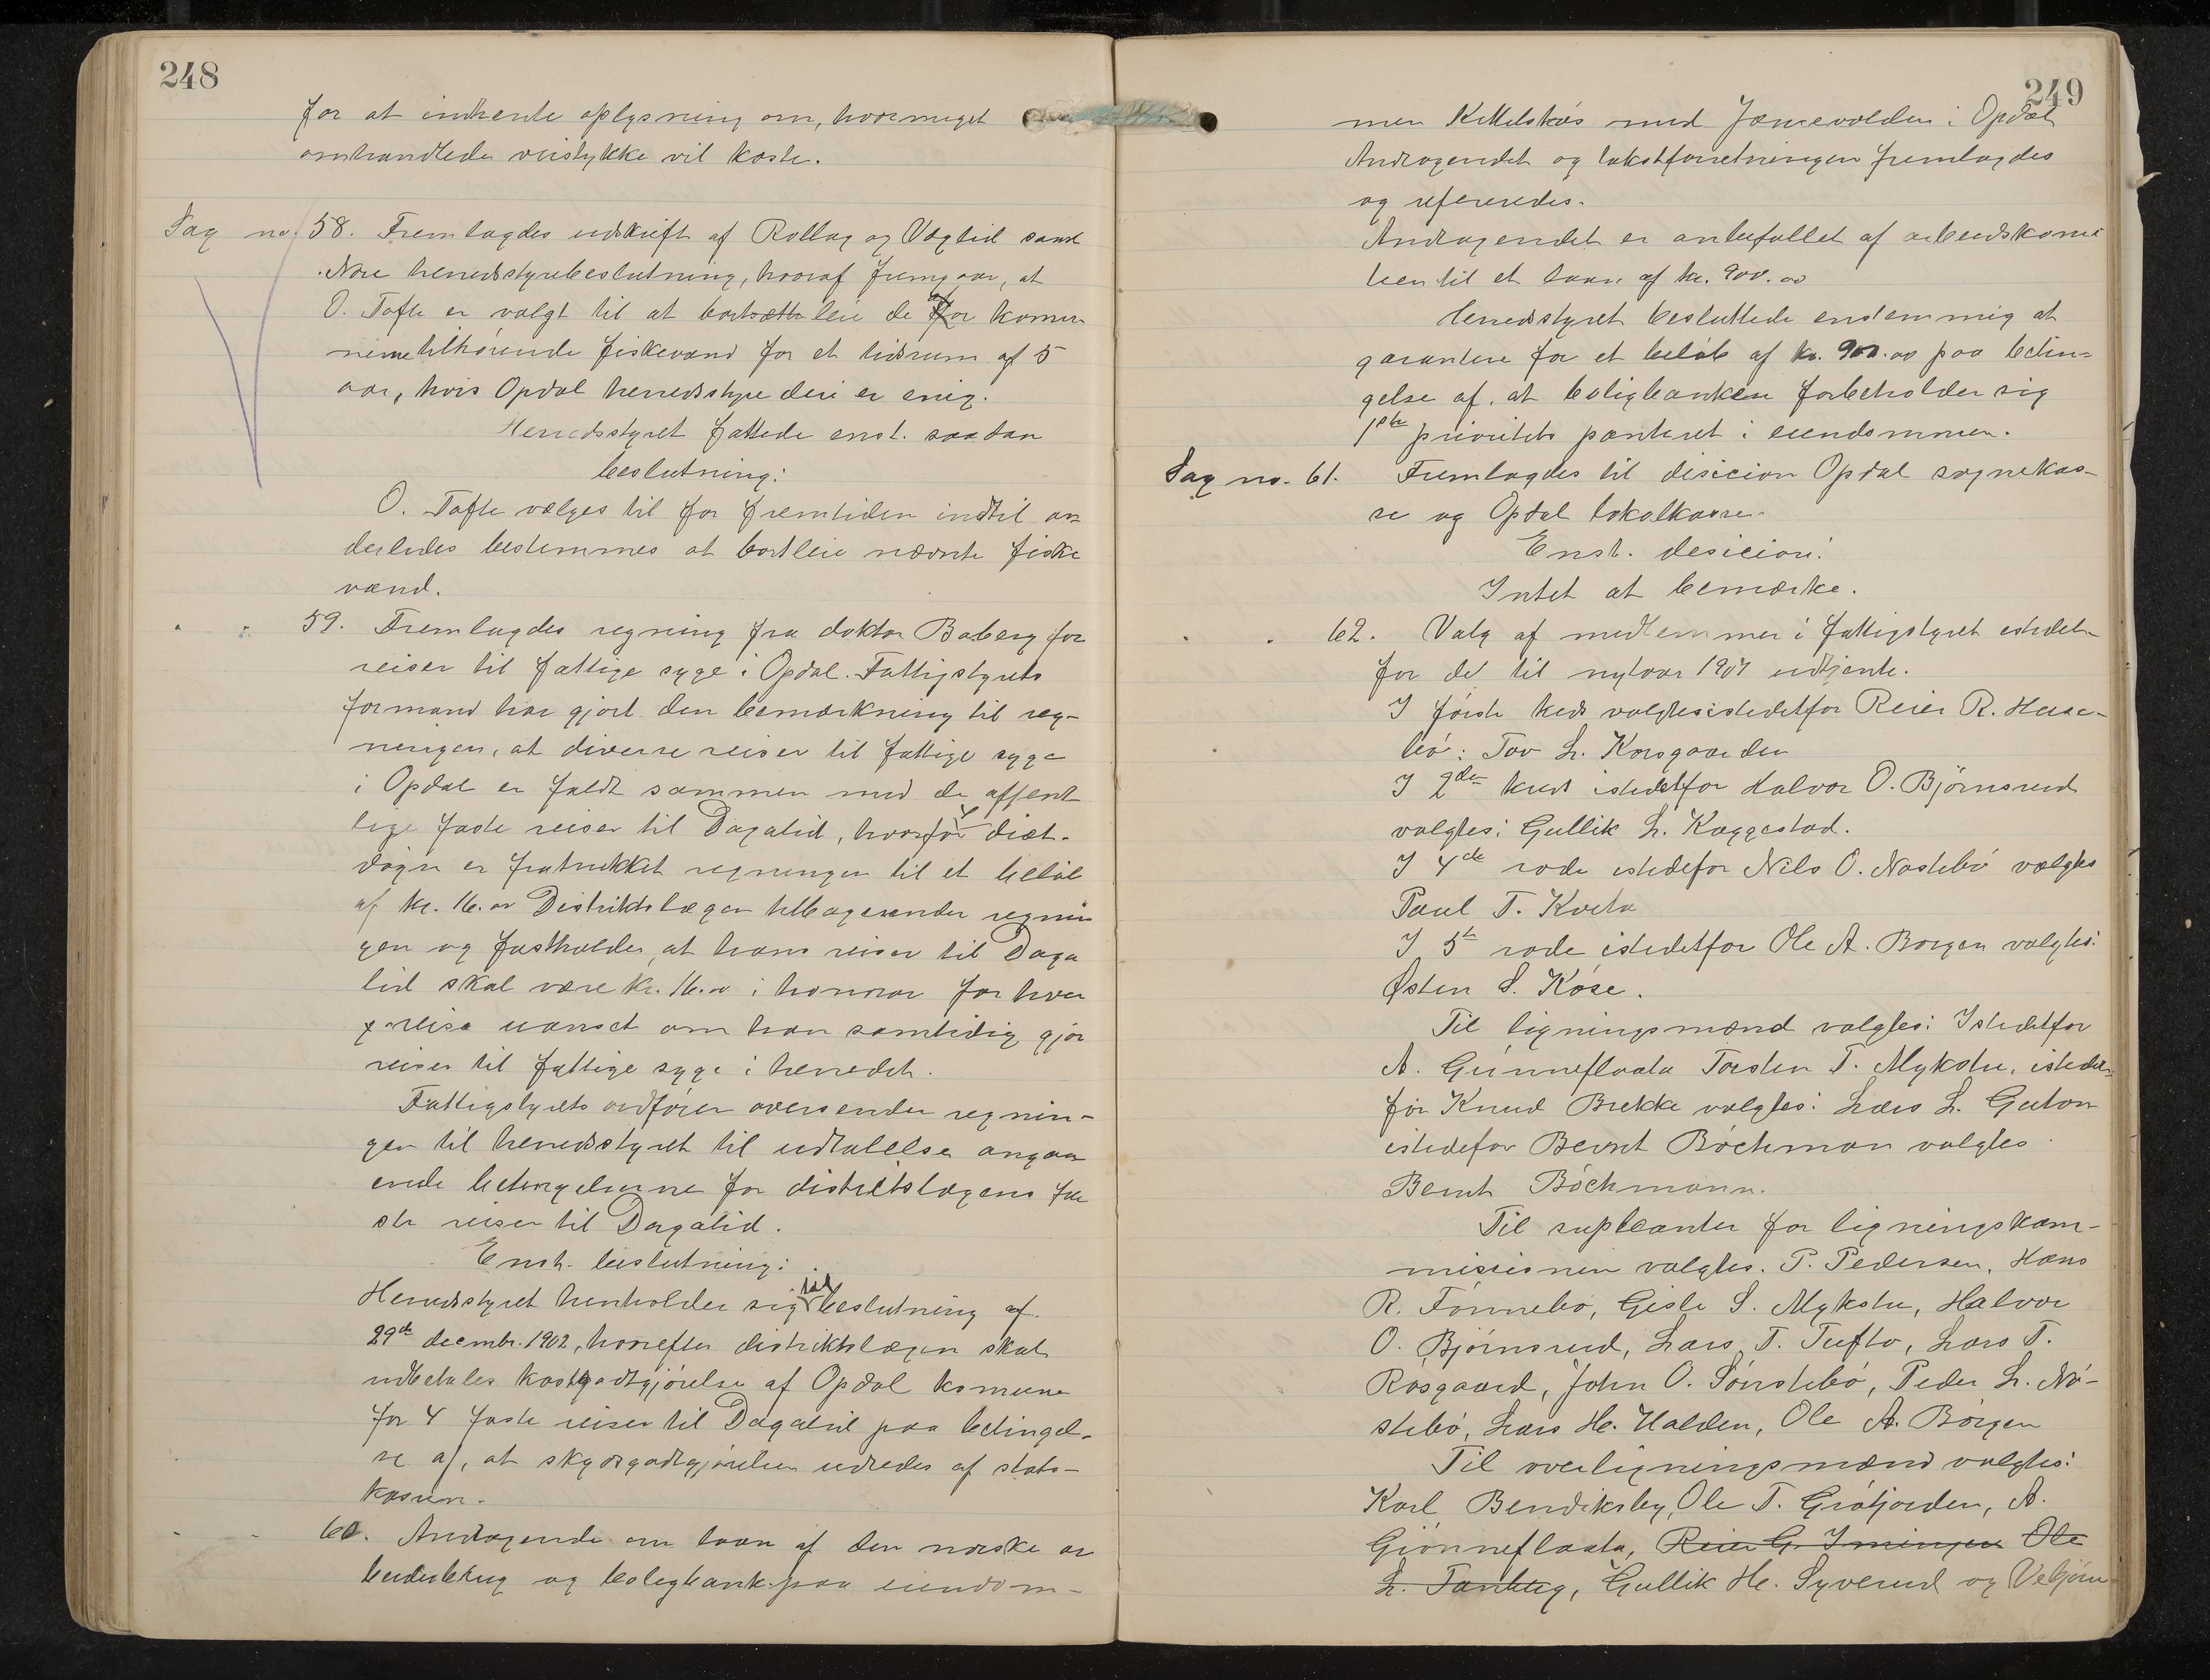 248
for at indhente oplysning om, hvormeget
omhandlede veistykke vil koste.
Sag no. 58. Fremlagdes udskrift af Rollag og Veglid samt
Nore herredsstyrebeslutning, hvoraf fremgaar, at
O. Tofte er valgt til at leie de for komu-
nerne tilhørende fiskevand for et tidsrum af 5
aar, hvis Opdal herredsstyre deri er enig.
Herredsstyret fattede enst. saadan
beslutning:
O. Tofte vælges til for fremtiden indtil an
derledes bestemmes at bortleie nævnte fiske
vand.
" " 59. Fremlagdes regning fra doktor Boberg for
reiser til fattige syge i Opdal. Fattigstyrets
formand har gjort den bemærkning til reg-
ningen, at diverse reiser til fattige syge
i Opdal er faldt sammen med de offent
lige faste reiser til Dagalid, hvorfor diæt-
døgn er fratrukket regningen til et beløb
af kr. 16.00 Distriktslægen tilbagesender regnin
gen og fastholder, at hans reiser til Daga
lid skal være kr. 16.00 i honorar for hver
reise uanset om han samtidig gjør
reiser til fattige syge i herredet.
Fattigstyrets ordfører oversender regnin-
gen til herredsstyret til udtalelse angaa
ende betingelserne for distriktslægens fa
ste reiser til Dagalid.
Enst. beslutning:
Herredsstyret henholder sig til beslutning af
29de decembr. 1902, hvorefter distriktslægen skal
udbetales kostgodtgjørelse af Opdal komune
for 4 faste reiser til Dagalid paa betingel-
se af, at skydsgodtgjørelsen udredes af stats-
kassen.
" " 60. Andragende om laan af den norske ar
beiderbrug og boligbank paa eiendom-
249
men Kittelsaas med Jonsevolden i Opdal
Andragendet og takstforretningen fremlagdes
og refereredes.
Andragendet er anbefallet af arbeidskomi
teen til et laan af kr. 900.00
Herredsstyret besluttede enstemmig at
garantere for et beløb af kr. 900.00 paa betin-
gelse af, at boligbanken forbeholder sig
1ste prioritets panteret i eiendommen.
Sag no. 61. Fremlagdes til disicion Opdal sognekas-
se og Opdal lokalkasse.
Enst. desicion:
Intet at bemærke.
" " 62. Valg af medlemmer i fattigstyret istedet-
for de til nytaar 1904 udtjente.
I første kreds valgtes istedetfor Reier R. Hese-
bø: Tov L. Korsgaarden
I 2den kreds istedetfor Halvor O. Bjørnsrud
valgtes: Gullik L. Kaggestad.
I 4de rode istedefor Nils O. Nøstebø vælgtes
Paul T. Kveta
I 5te rode istedetfor Ole A. Borgen valgtes:
Østen S. Kase.
Til ligningsmænd valgtes: Istedetfor
A. Gunneflaata Torsten T. Mykstu, istedet-
for Knud Brekke valgtes: Lars L. Guton
istedefor Bernt Bøchman valgtes
Bernt Bøchmann.
Til supleanter for ligningskom-
missionen valgtes. P. Pedersen, Hans
R. Fønnebø, Gisle S. Mykstu, Halvor
O. Bjørnsrud, Lars T. Tufto, Lars T.
Rosgaard, John O. Sønstebø, Peder L. Nø-
stebø, Lars H. Halden, Ole A. Børgen
Til overligningsmænd valgtes:
Karl Bendiksby, Ole T. Grøtjorden, A.
Giønneflaata, Reier G. Imingen Ole
L. Tanberg, Gullik H. Syverud og Vebjørn